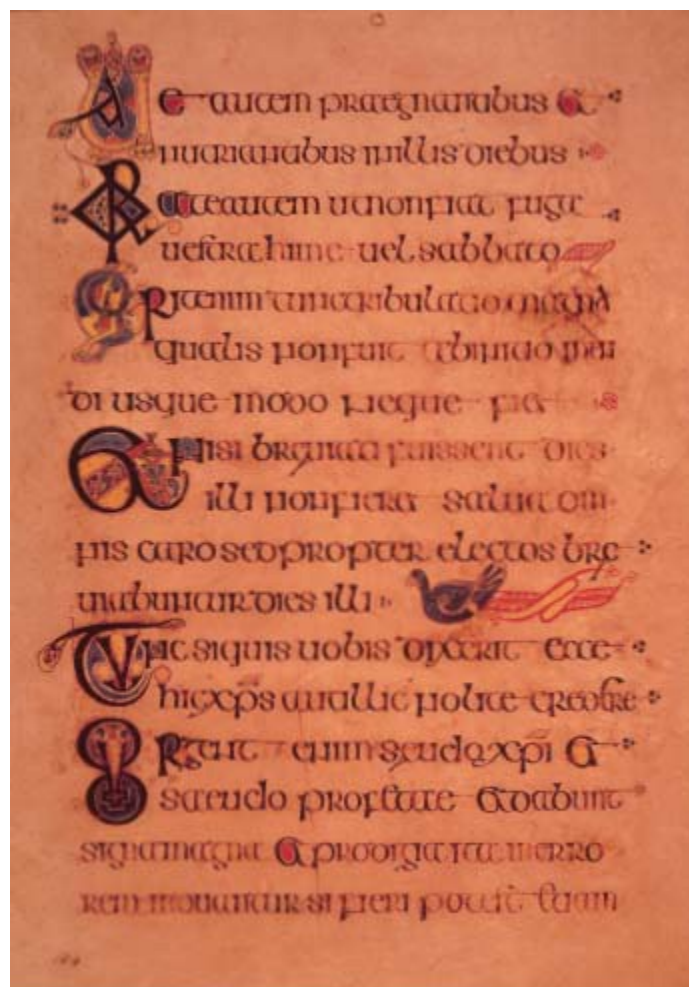 Uae autem praegnantibus et
nutrientibus in illis diebus
Orate autem ut non fiat fuga
uestra hieme uel sabbato
Erit enim tunc tribulatio magna
qualis non fuit ab initio mun
di usque modo neque fiet
Et nisi breuiati fuissent dies
illi non fieret salua om
nis caro sed propter electos bre
uiabuntur dies illi
Tunc si quis uobis dixerit ecce
hic xps aut illic nolite credere
surgent enim seudo xpi et
saeudo profetae et dabunt
signa magna et prodigia ita ut in erro
rem moueantur si fieri potest etiam